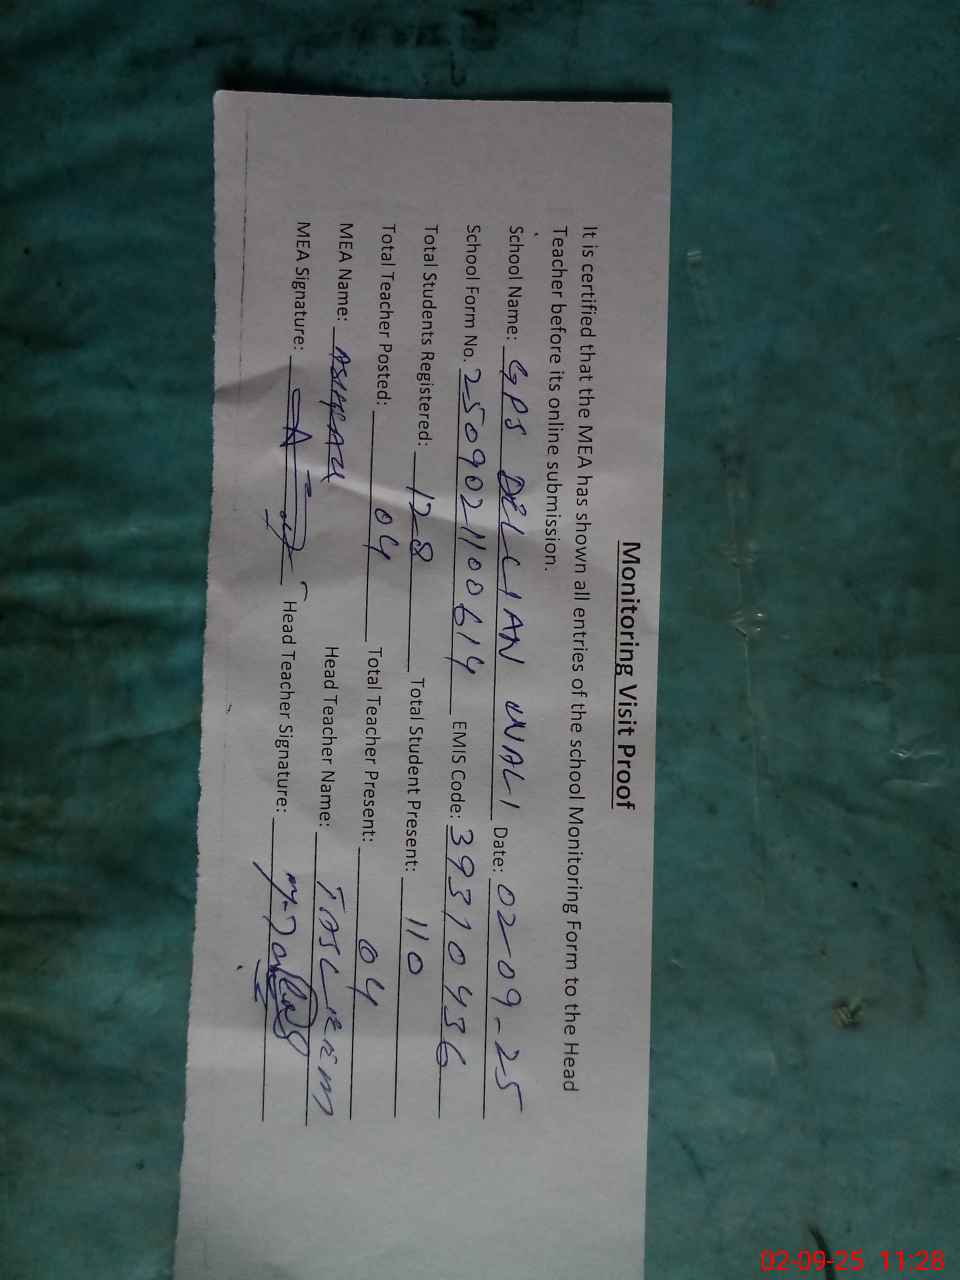 Monitoring Visit Proof
It is certified that the MEA has shown all entries of the school Monitoring Form to the Head
Teacher before its online submission.
School Name: GPS WALI Date: 02-09-25
School Form No. 2509021100614 EMIS Code: 39310436
Total Students Registered: 128 Total Student Present: 110
Total Teacher Posted: 04 Total Teacher Present: 04
MEA Name: Head Teacher Name: TASLEEM
MEA Signature: Head Teacher Signature:
02-09-25 11:28